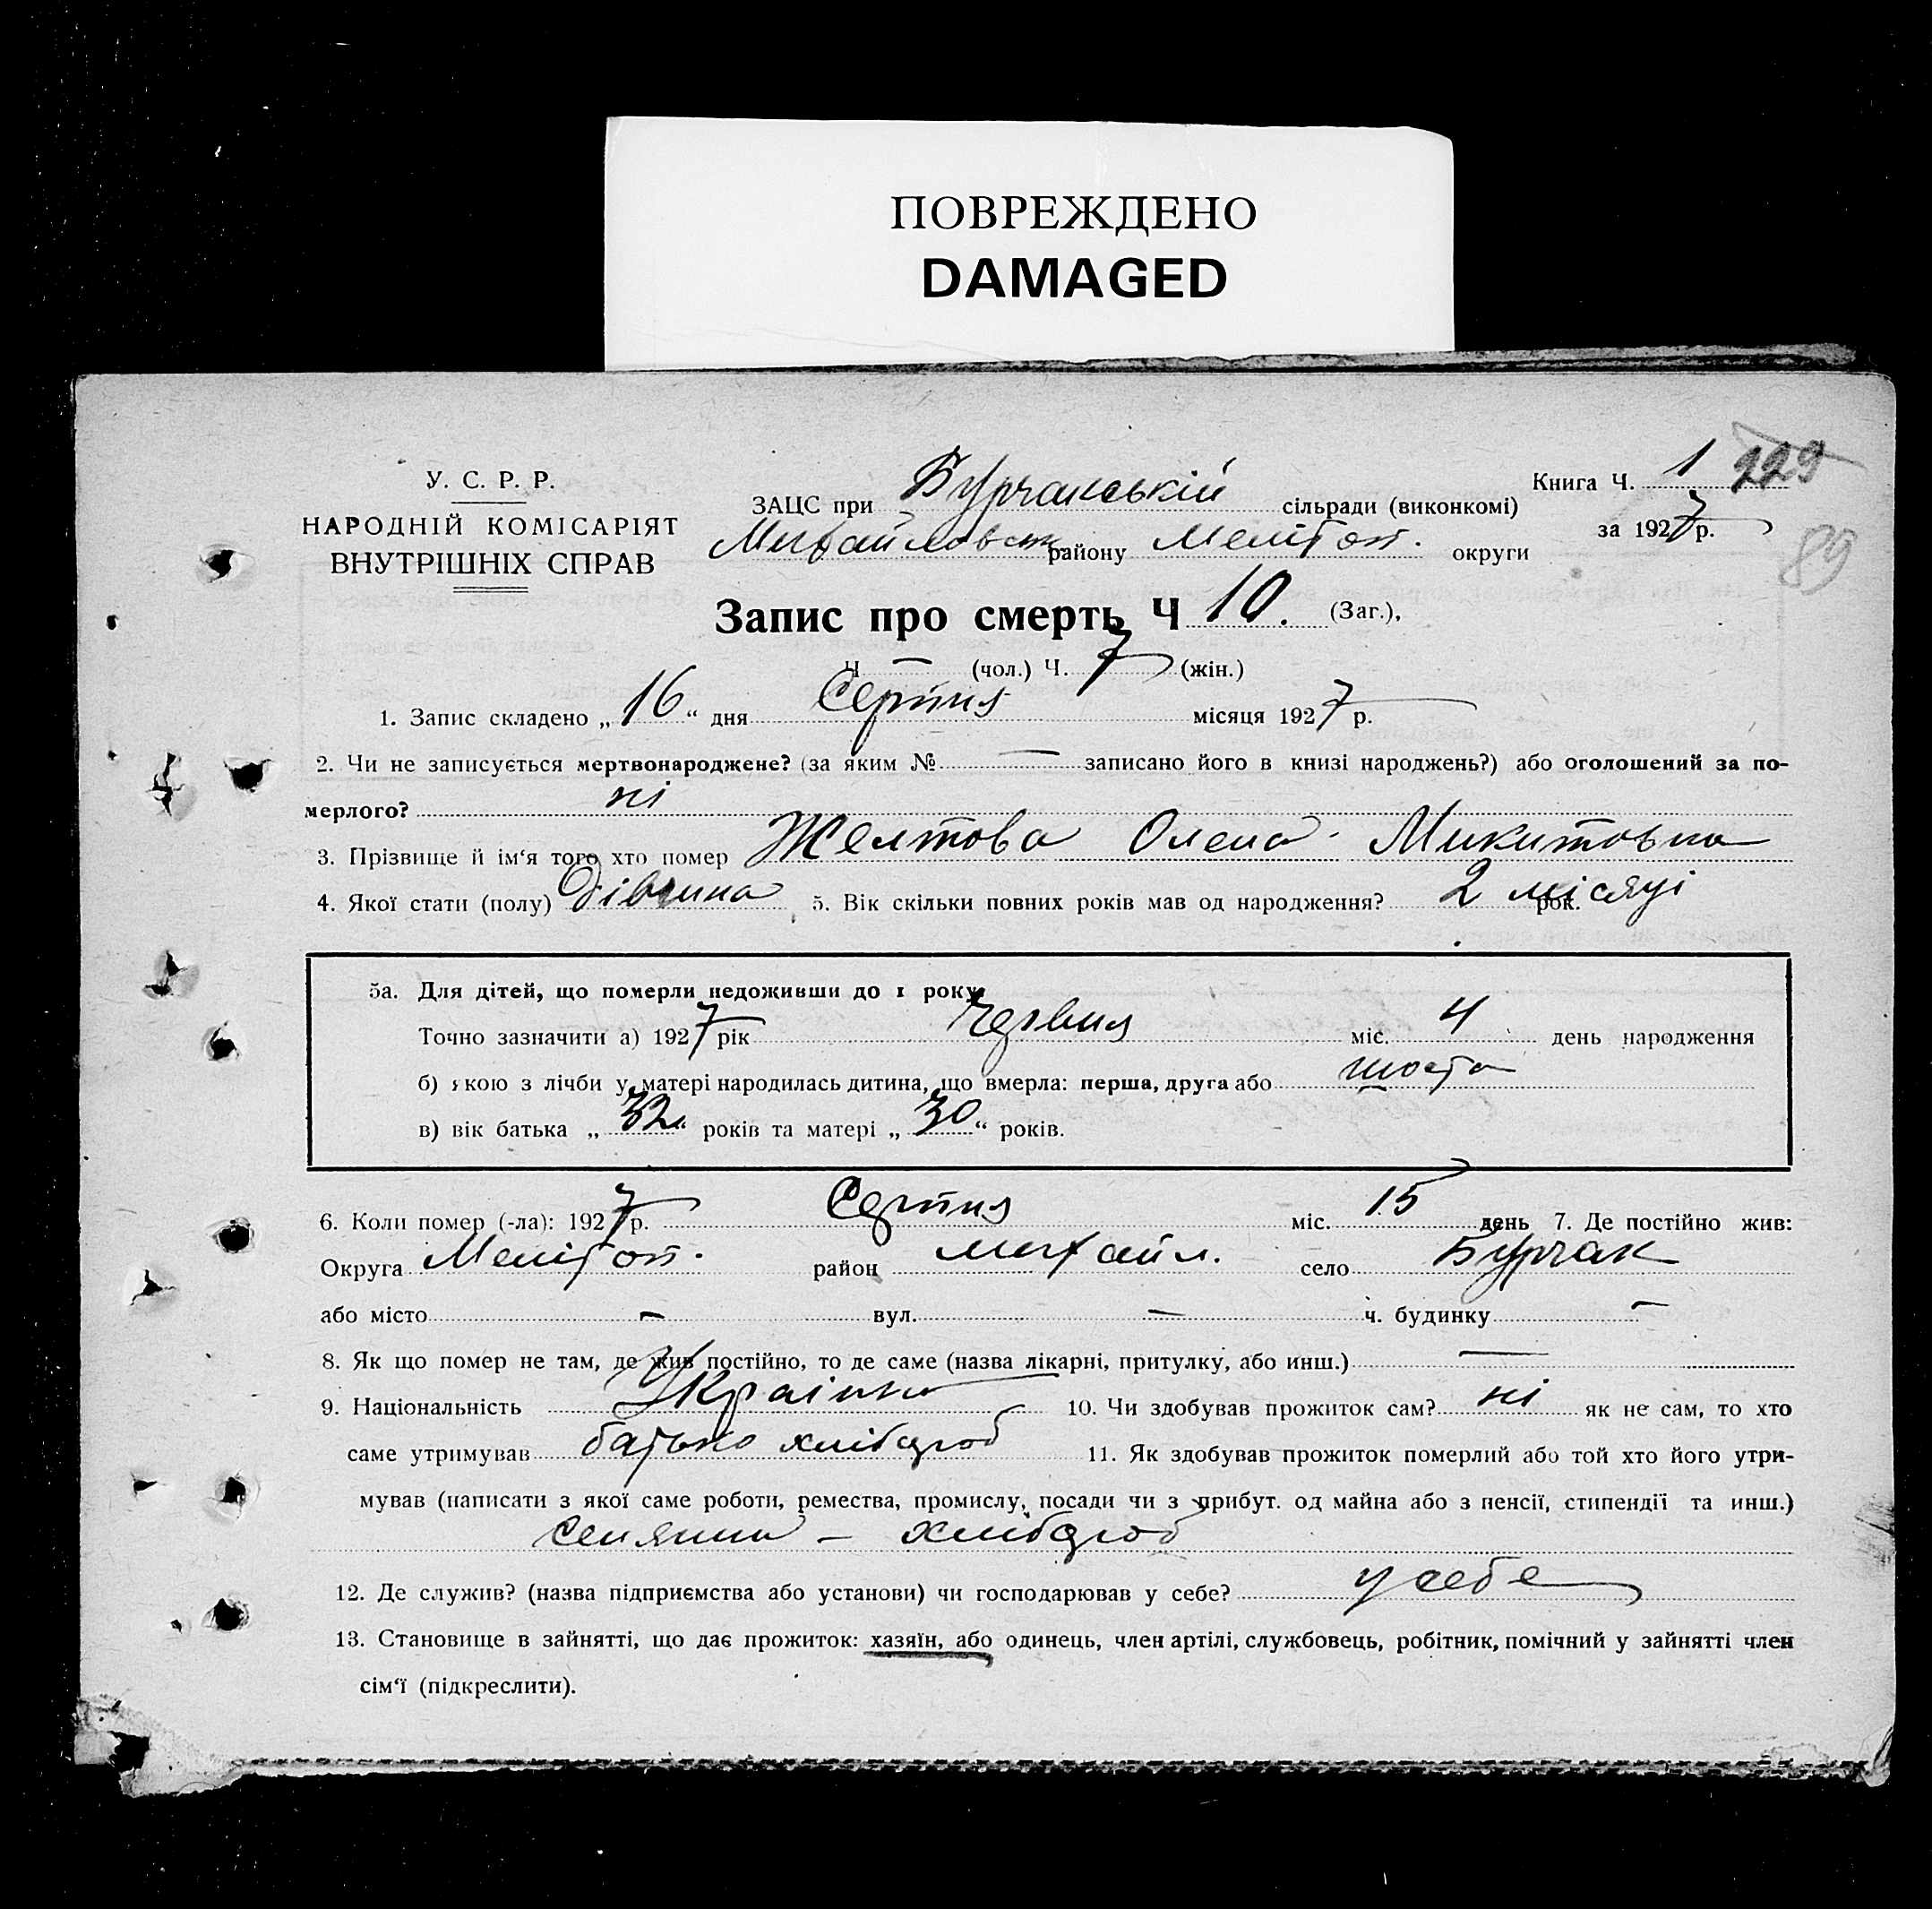 ПОВРЕЖДЕНО
DAMAGED
У. С. Р. Р.
НАРОДНІЙ КОМІСАРІЯТ
ВНУТРІШНІХ СПРАВ
Книга Ч. 1 229
за 1927 р.
89
ЗАЦС при Бурчанській сільради (виконкомі)
Михайловськ району Мелітоп. округи
Запис про смерть Ч 10. (Заг.),
Ч — (чол.) Ч. 7 (жін.)
1. Запис складено „16“ дня Серпня місяця 1927 р.
2. Чи не записується мертвонароджене? (за яким № — записано його в книзі народжень?) або оголошений за по-
мерлого? ні
3. Прізвище й ім'я того хто помер Желтова Олена Микитовна
4. Якої стати (полу) дівчина 5. Вік скільки повних років мав од народження? 2 місяці рок.
5а. Для дітей, що померли недоживши до 1 року
Точно зазначити а) 1927 рік Червня міс. 4 день народження
б) якою з лічби у матері народилась дитина, що вмерла: перша, друга або шоста
в) вік батька „32“ років та матері „30“ років.
6. Коли помер (-ла): 1927 р. Серпня міс. 15 день 7. Де постійно жив:
Округа Мелітоп. район михайл. село Бурчак
або місто — вул. — ч. будинку —
8. Як що помер не там, де жив постійно, то де саме (назва лікарні, притулку, або инш.) —
9. Національність Українка 10. Чи здобував прожиток сам? ні як не сам, то хто
саме утримував батько хлібороб 11. Як здобував прожиток померлий або той хто його утри-
мував (написати з якої саме роботи, ремества, промислу, посади чи з прибут. од майна або з пенсії, стипендії та инш.)
селянин – хлібороб
12. Де служив? (назва підприємства або установи) чи господарював у себе? у себе
13. Становище в зайнятті, що дає прожиток: хазяїн, або одинець, член артілі, службовець, робітник, помічний у зайнятті член
сім'ї (підкреслити).